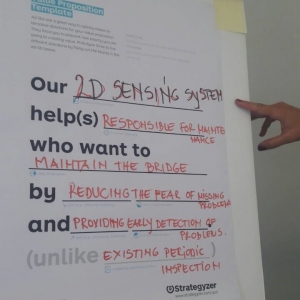 Value Proposition
Template
Our 2D SENSING SYSTEM
help(s) RESPONSIBLE FOR MAINTE
NANCE
who want to
MAINTAIN THE BRIDGE
by REDUCING THE FEAR OF MISSING
PROBLEMS
and PROVIDING EARLY DETECTION OF
PROBLEMS.
(unlike EXISTING PERIODIC )
INSPECTION
Strategyzer